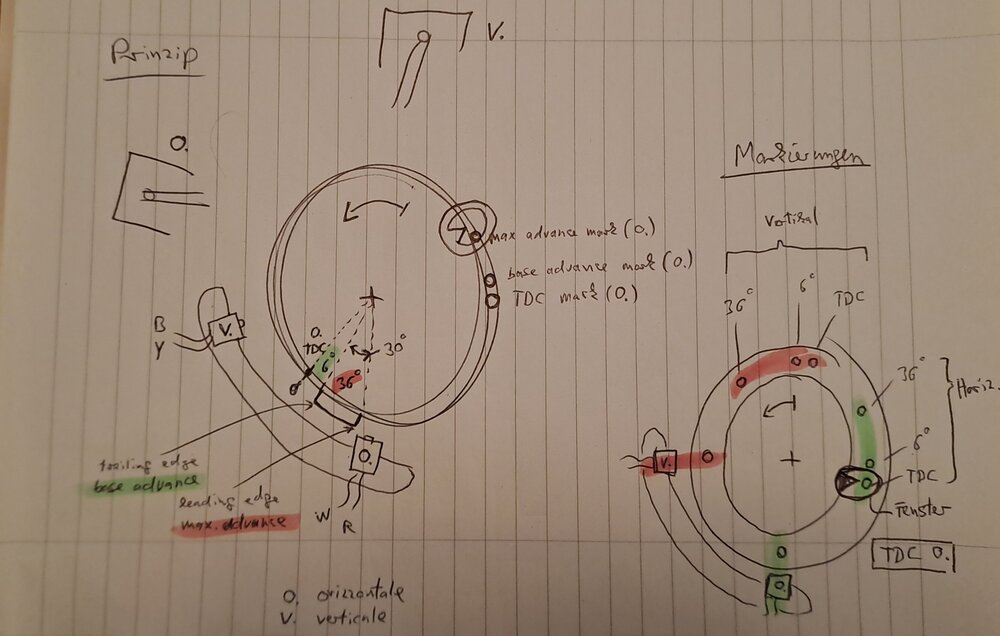 Prinzip
V.
O.
max advance mark (O.)
base advance mark (O.)
TDC mark (O.)
B
Y
V.
O.
TDC
6°
36°
30°
trailing edge
base advance
leading edge
max. advance
O.
W
R
O. orizzontale
V. verticale
Markierungen
Vertikal
36°
6°
TDC
36°
6°
TDC
Horiz.
Fenster
TDC O.
V.
O.